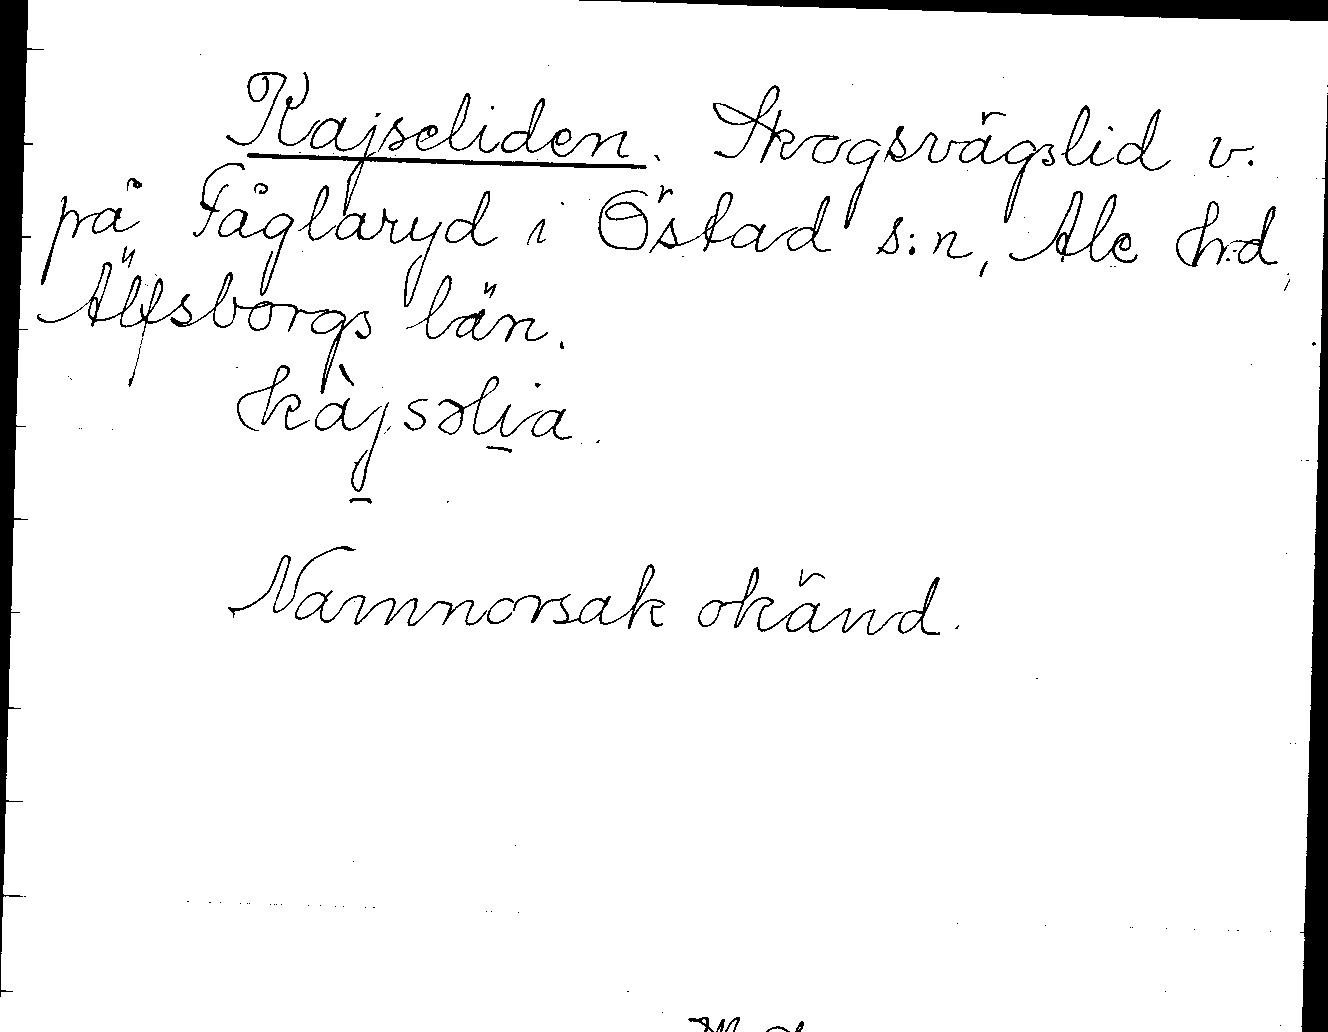 Kajseliden. Skogsvägslid v.
på Fåglaryd i Östad s:n, Ale h:d,
Älfsborgs län.
kàjsəlia.
Namnorsak okänd.